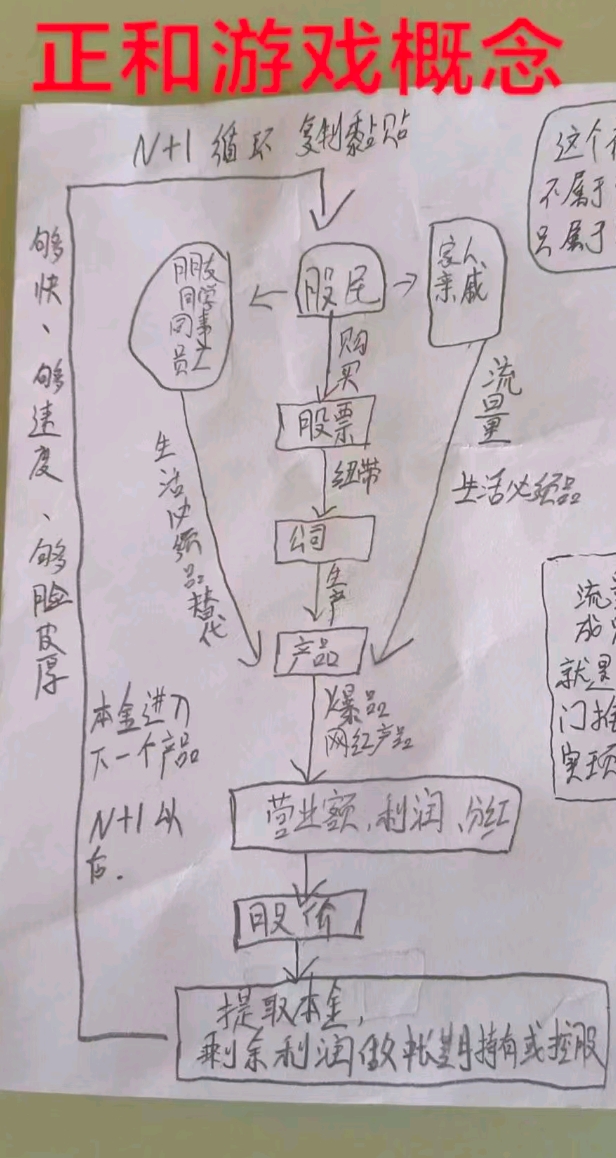 正和游戏概念
N+1 循环 复制黏贴
这个
不属于
只属于
够快、够速度、够脸皮厚
朋友
同学
同事
员工
股民
家人、
亲戚
购买
股票
纽带
流量
生活必须品
公司
生产
生活必须品替代
产品
爆品
网红产品
流
成
就是
门推
实现
本金进入
下一个产品
N+1 以
后.
营业额、利润、分红
股价
提取本金,
剩余利润做长期持有或控股